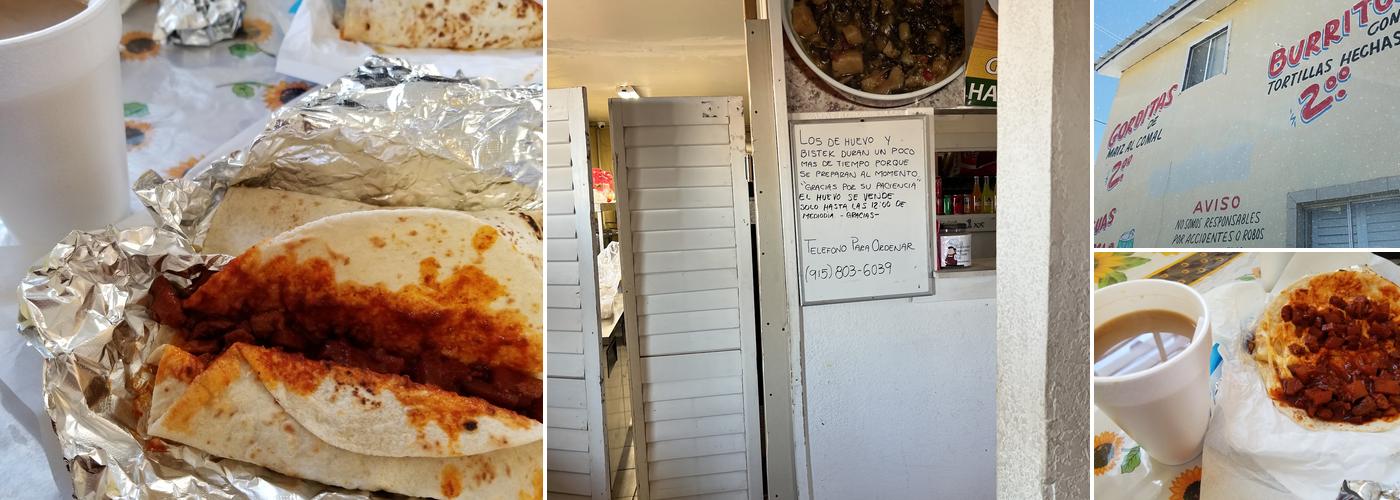 LOS DE HUEVO Y
BISTEK DURAN UN POCO
MAS DE TIEMPO PORQUE
SE PREPARAN AL MOMENTO
"GRACIAS POR SU PACIENCIA"
EL HUEVO SE VENDE
SOLO HASTA LAS 12:00 DE
MEDIODIA - GRACIAS -
TELEFONO PARA ORDENAR
(915) 803-6039
HA
BURRITO
CON
TORTILLAS HECHAS
2.00
GORDITAS
DE
MAIZ AL COMAL
2.00
AVISO
NO SOMOS RESPONSABLES
POR ACCIDENTES O ROBOS